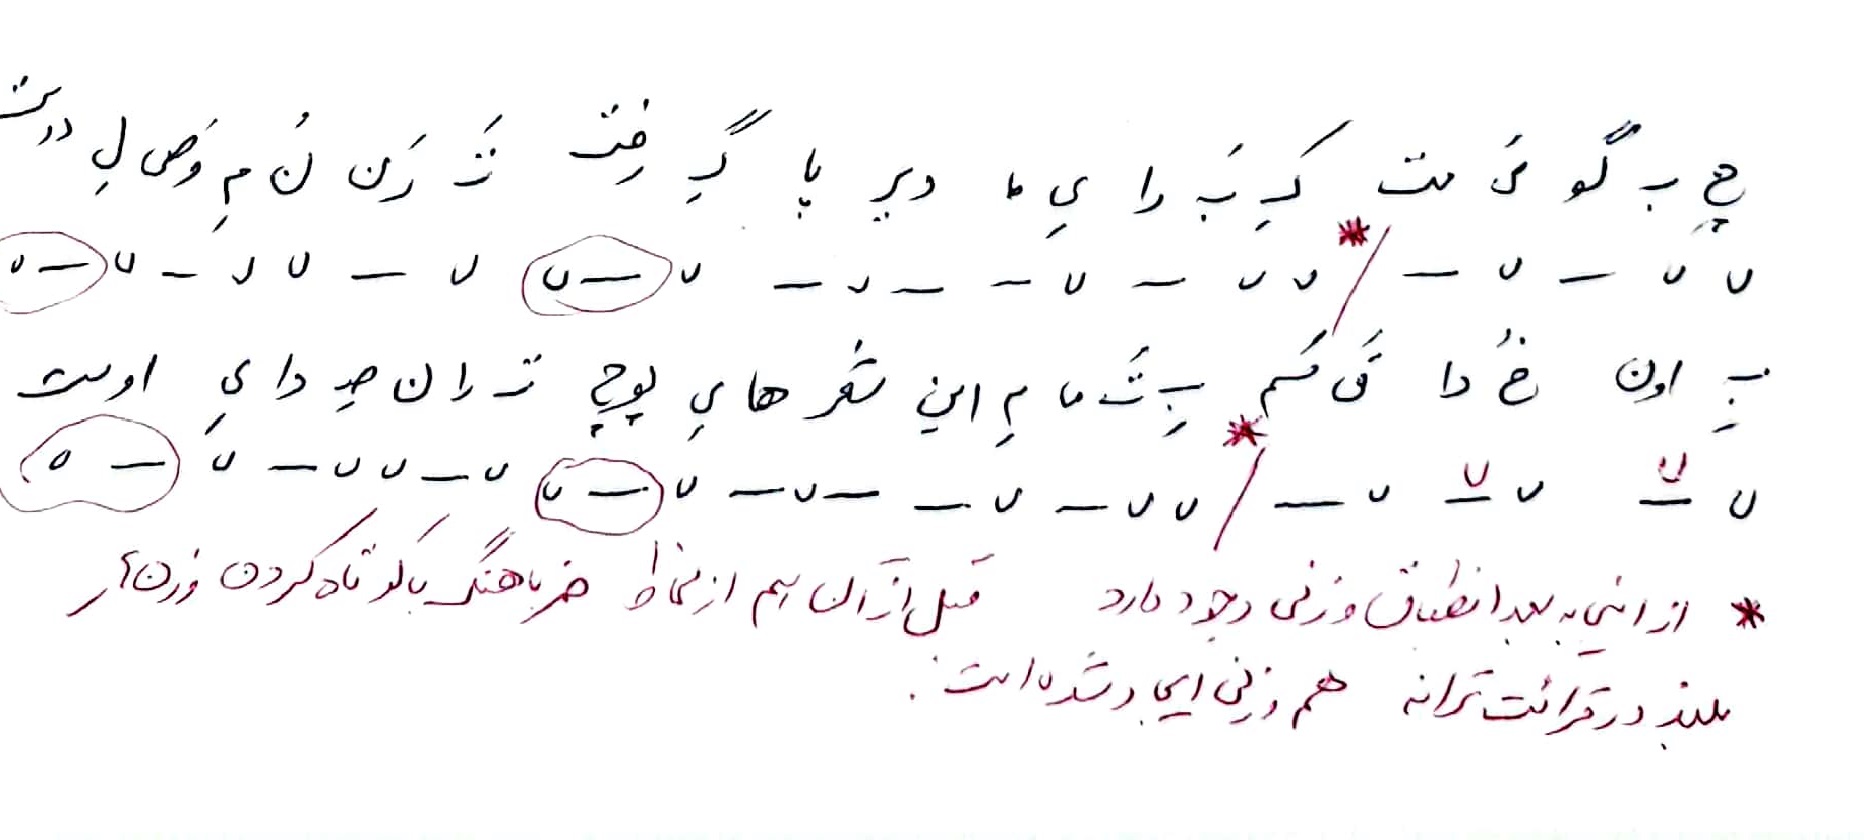 چِ بِ گو یَ مت کِ بَ را یِ ما دیر پا گِ رفت تَ رَن نُ مِ وَص لِ درت
U U – U – / * U U – U – – U – U – U U – U U – U – U
بِ اون خُ دا قَ سَم بِ تَ ما مِ این شعر های پوچ تَ را نِ صِ دا یِ اوست
U – U – U – / * U U – U – – U – U – U U – U U – U – U
* از اینی به بعد انطباق وزنی وجود دارد قبل از آن هم از لحاظ ضرباهنگ با کوتاه کردن وزن‌های
بلند در قرائت ترانه هم وزنی ایجاد شده است.